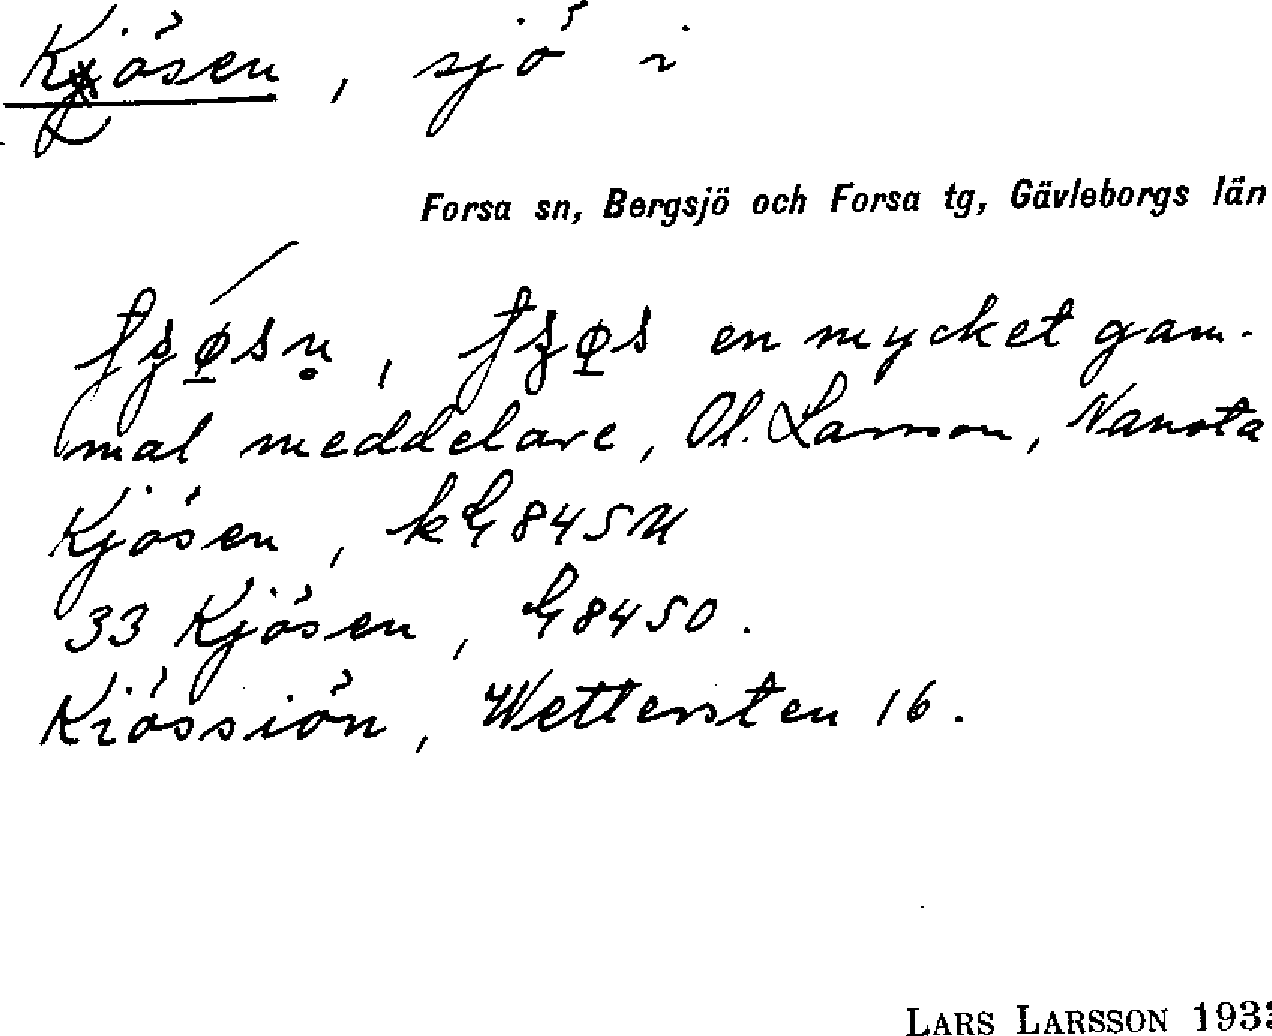 Kjösen, sjö i
Forsa sn, Bergsjö och Forsa tg, Gävleborgs län
en mycket gam-
mal meddelare, Ol. Larsson, Nansta
Kjösen, 845
33 Kjösen, 8450.
Kiössiön, Wettersten 16.
LARS LARSSON 193